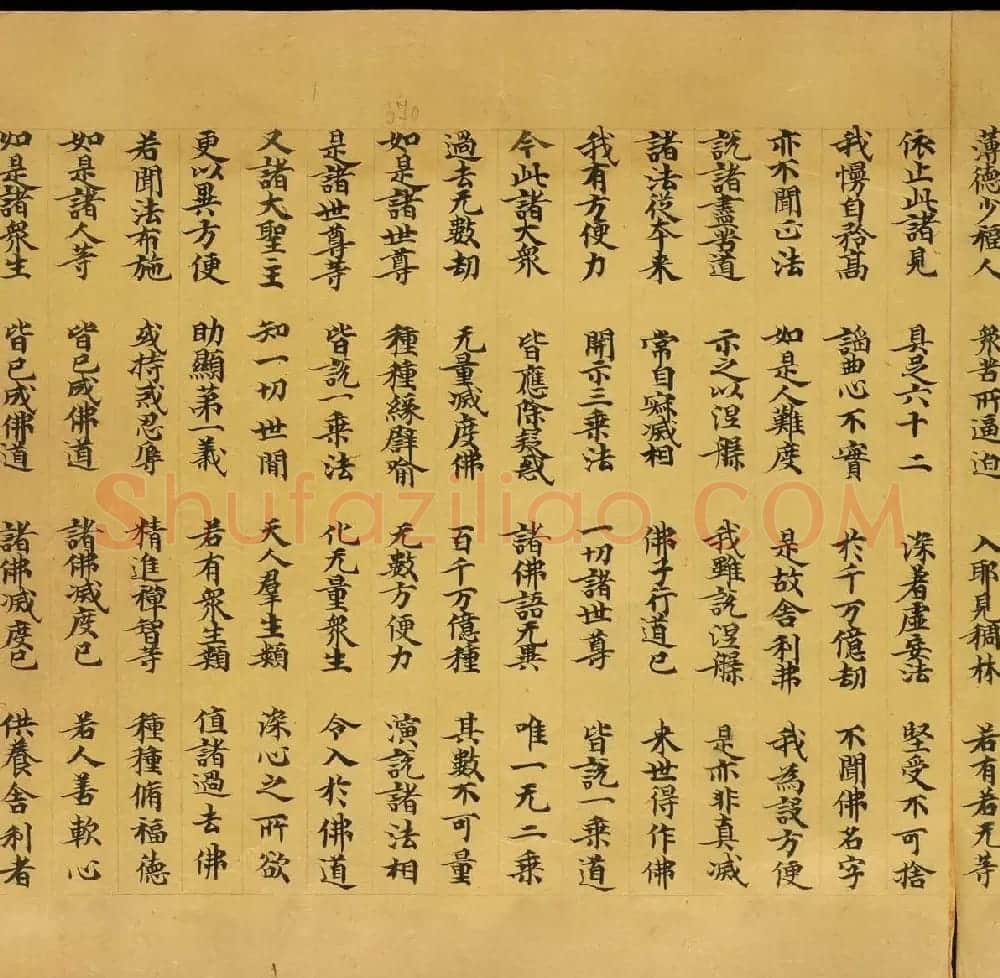 薄德少福人 衆苦所逼迫 入耶見稠林 若有若无等
依止此諸見 具足六十二 深著虛妄法 堅受不可捨
我慢自矜高 諂曲心不實 於千万億劫 不聞佛名字
亦不聞正法 如是人難度 是故舍利弗 我為設方便
說諸盡苦道 示之以涅槃 我雖說涅槃 是亦非真滅
諸法從本来 常自寂滅相 佛子行道已 来世得作佛
我有方便力 開示三乗法 一切諸世尊 皆說一乗道
今此諸大衆 皆應除疑惑 諸佛語无異 唯一无二乗
過去无數劫 无量滅度佛 百千万億種 其數不可量
如是諸世尊 種種緣譬喻 无數方便力 演說諸法相
是諸世尊等 皆說一乗法 化无量衆生 令入於佛道
又諸大聖主 知一切世間 天人羣生類 深心之所欲
更以異方便 助顯第一義 若有衆生類 值諸過去佛
若聞法布施 或持戒忍辱 精進禪智等 種種脩福德
如是諸人等 皆已成佛道 諸佛滅度已 若人善軟心
如是諸衆生 皆已成佛道 諸佛滅度已 供養舍利者
Shufaziliao.COM